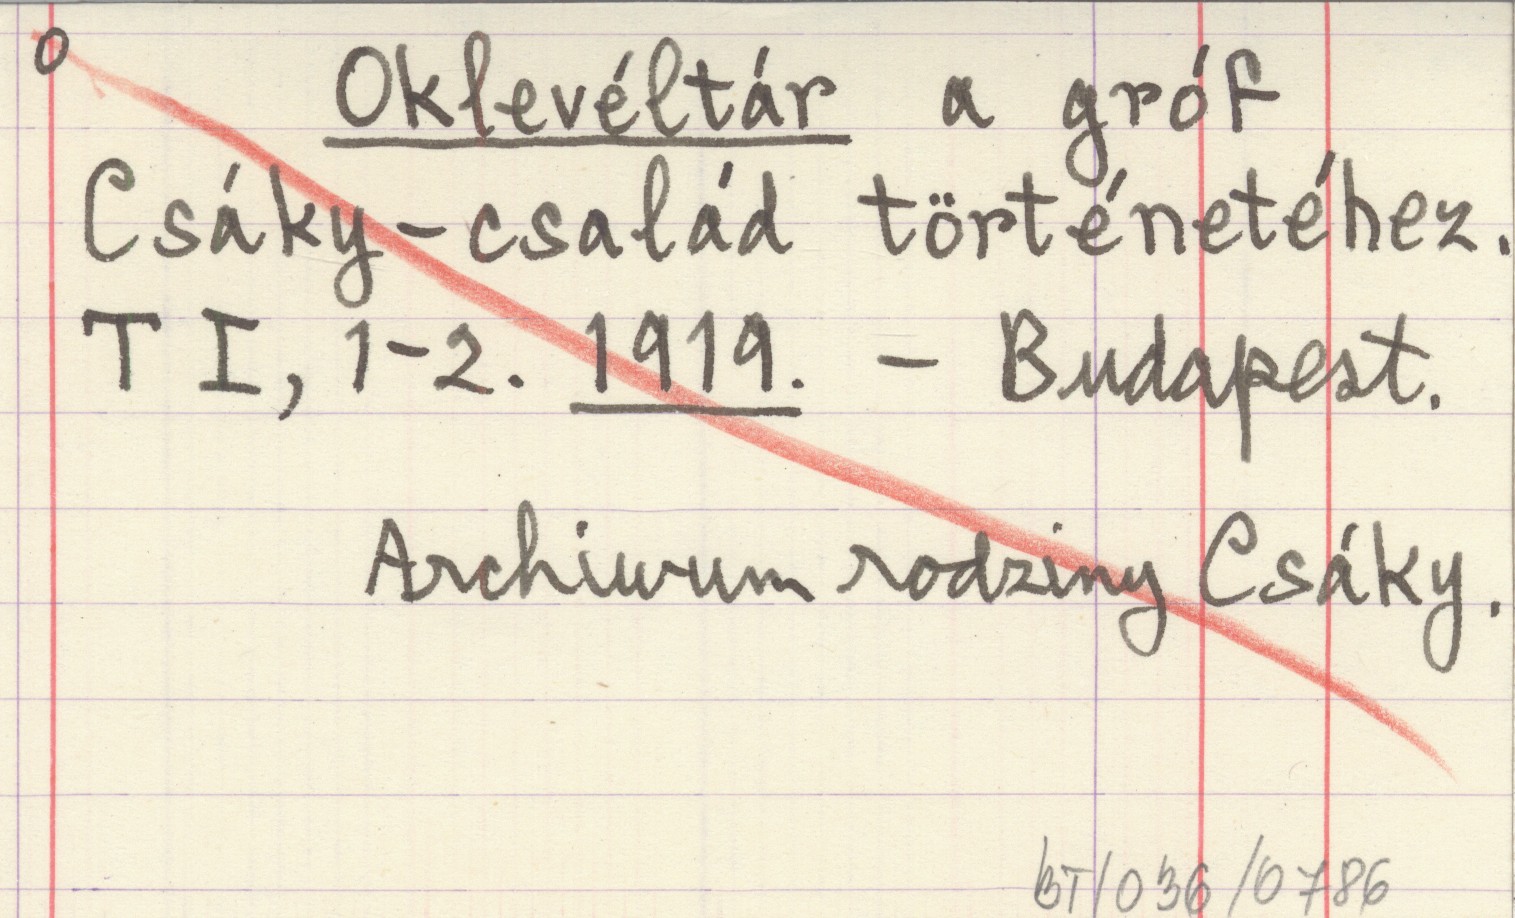 O
Oklevéltár a gróf
Csáky-család történetéhez.
T I, 1-2. 1919. - Budapest.
Archiwum rodziny Csáky.
BT/036/0786